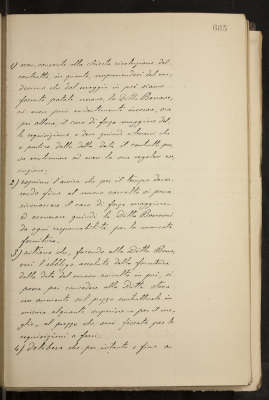 665
1) non consente alla chiesta risoluzione del
contratto, in quanto, empirandosi del me-
desimo che dal maggio in poi siano
forniti patate nuove, la Ditta Bonavo,
si non può evidentemente invocare, ora
per allora, il caso di forza maggiore del
le requisizioni e deve quindi ritenersi che
a partire dalla detta data il contratto pos-
sa continuare ad avere la sua regolare ese
cuzione;
2) esprime l'avviso che per il tempo decor-
rendo fino al nuovo raccolto si possa
riconoscere il caso di forza maggiore
ed esonerare quindi la Ditta Bonavoni
da ogni responsabilità per le mancate
forniture.
3) ritiene che, facendo alla Ditta Bona
voni l'obbligo assoluto della fornitura
dalla data del nuovo raccolto in poi, si
possa poi concedere alla Ditta stessa
un aumento sul prezzo contrattuale in
misura alquanto superiore o, per il me-
glio, al prezzo che sarà fissato per le
requisizioni a farsi;
4) delibera che per intanto e fino a